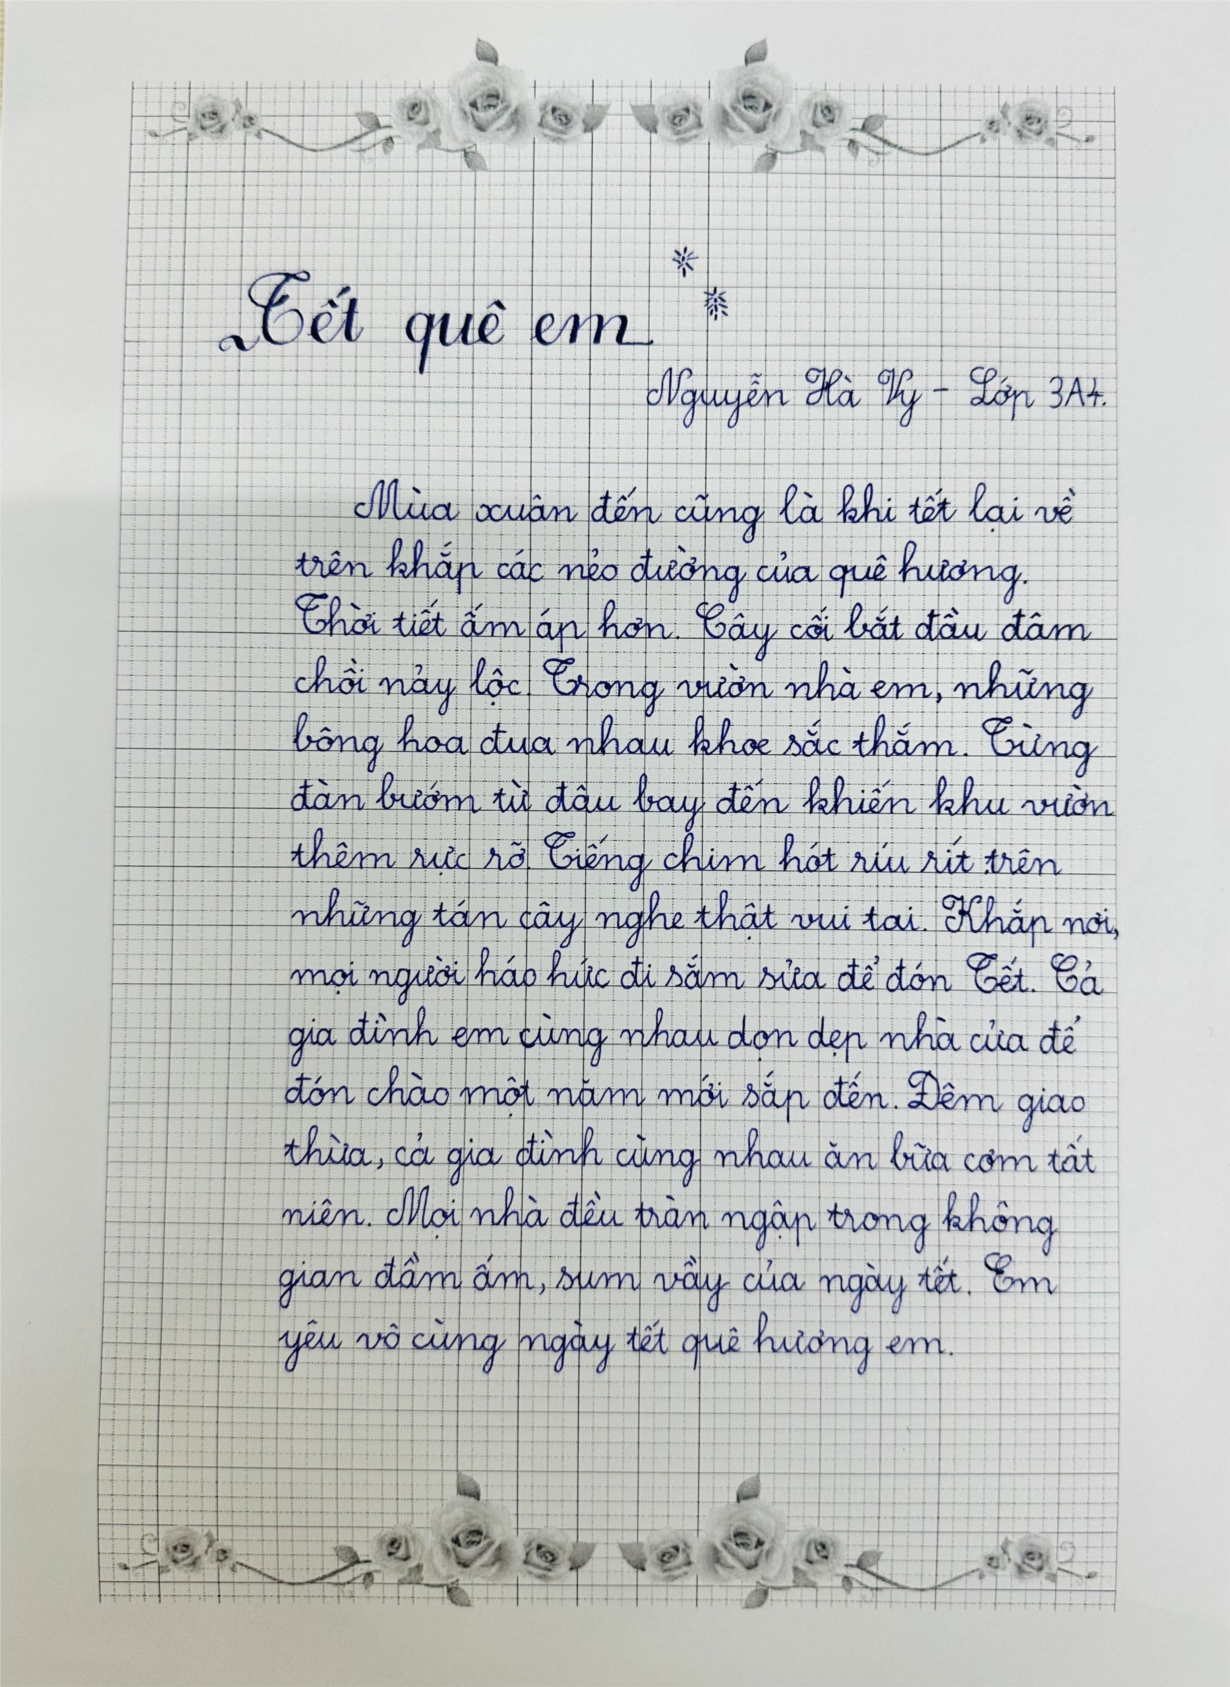 Tết quê em
Nguyễn Hà Vy - Lớp 3A4.
Mùa xuân đến cũng là khi tết lại về
trên khắp các nẻo đường của quê hương.
Thời tiết ấm áp hơn. Cây cối bắt đầu đâm
chồi nảy lộc. Trong vườn nhà em, những
bông hoa đua nhau khoe sắc thắm. Từng
đàn bướm từ đâu bay đến khiến khu vườn
thêm rực rỡ. Tiếng chim hót ríu rít trên
những tán cây nghe thật vui tai. Khắp nơi,
mọi người háo hức đi sắm sửa để đón Tết. Cả
gia đình em cùng nhau dọn dẹp nhà cửa để
đón chào một năm mới sắp đến. Đêm giao
thừa, cả gia đình cùng nhau ăn bữa cơm tất
niên. Mọi nhà đều tràn ngập trong không
gian đầm ấm, sum vầy của ngày tết. Em
yêu vô cùng ngày tết quê hương em.